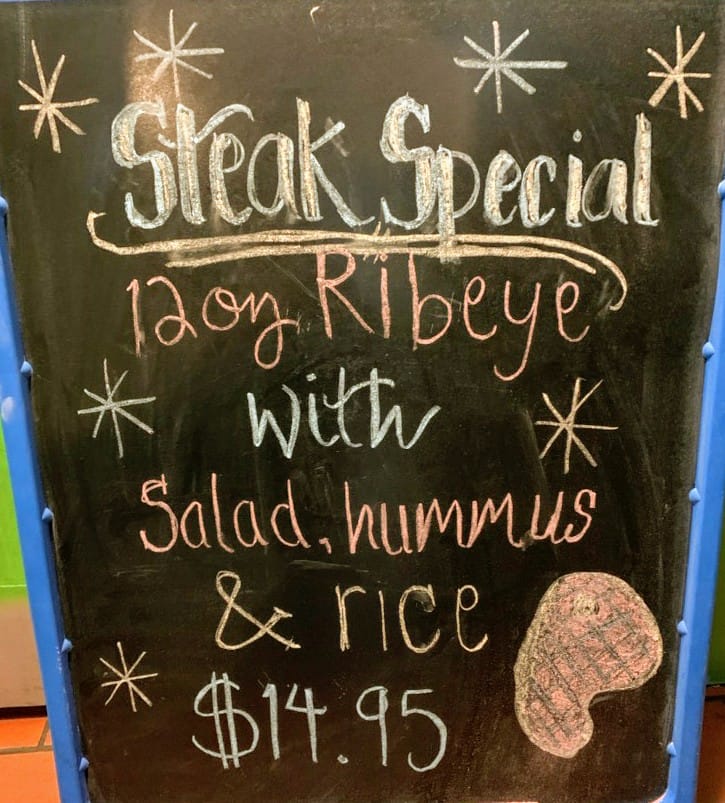 Steak Special
12oz Ribeye
with
Salad, hummus
& rice
$14.95